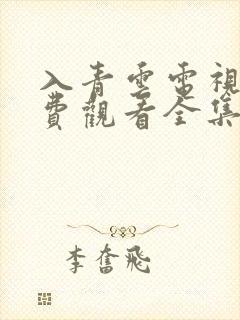 入青雲電視
費觀看全集
李奮飛